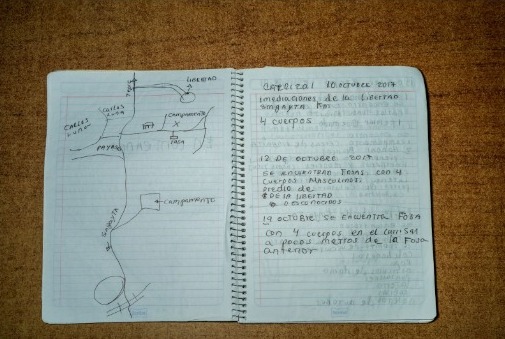 LIBERTAD
CARLOS
CARLOS
CAMPAMENTO
X
CASA
CAMPAMENTO
CARRIZAL 10 OCTUBRE 2017
Inmediaciones de la LIBERTAD
4 CUERPOS
12 DE OCTUBRE 2017
SE ENCUENTRAN FOSAS CON 4
CUERPOS MASCULINOS
PREDIO DE
DE LA LIBERTAD
DESCONOCIDOS
19 OCTUBRE SE ENCUENTRA FOSA
CON 4 CUERPOS EN EL CARRIZAL
A POCOS METROS DE LA FOSA
ANTERIOR